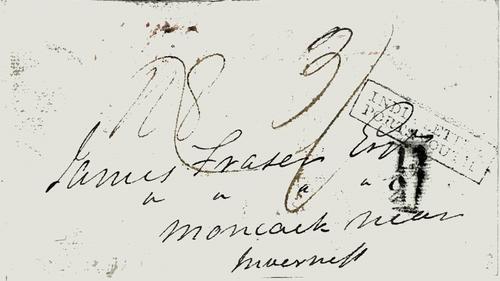 3/
INDIA LETTER
PORTSMOUTH
James Fraser Esqr
Moncack near
Inverness